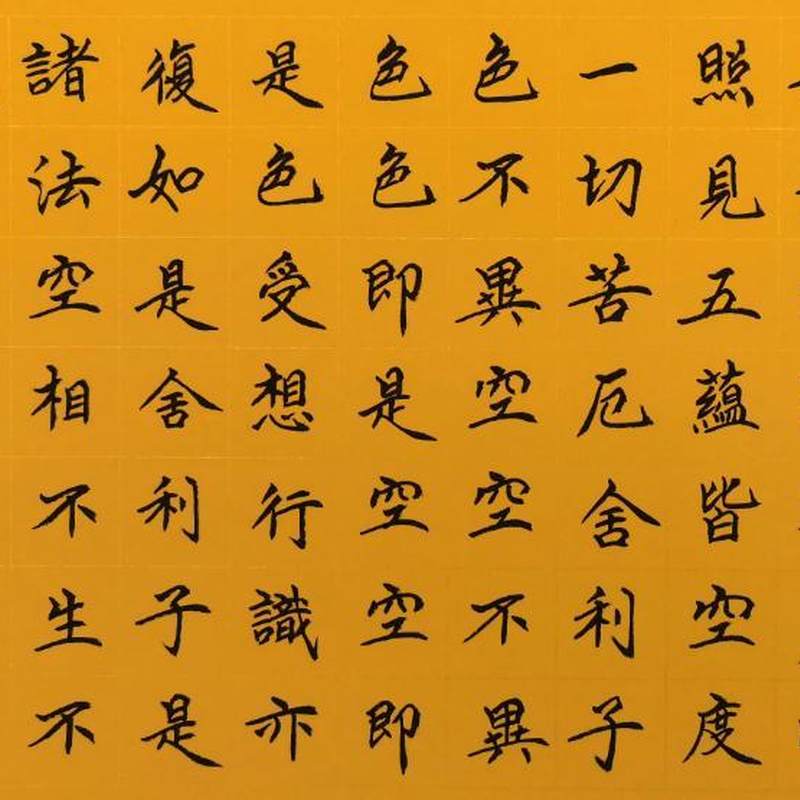 照見五蘊皆空度
一切苦厄舍利子
色不異空空不異
色色即是空空即
是色受想行識亦
復如是舍利子是
諸法空相不生不